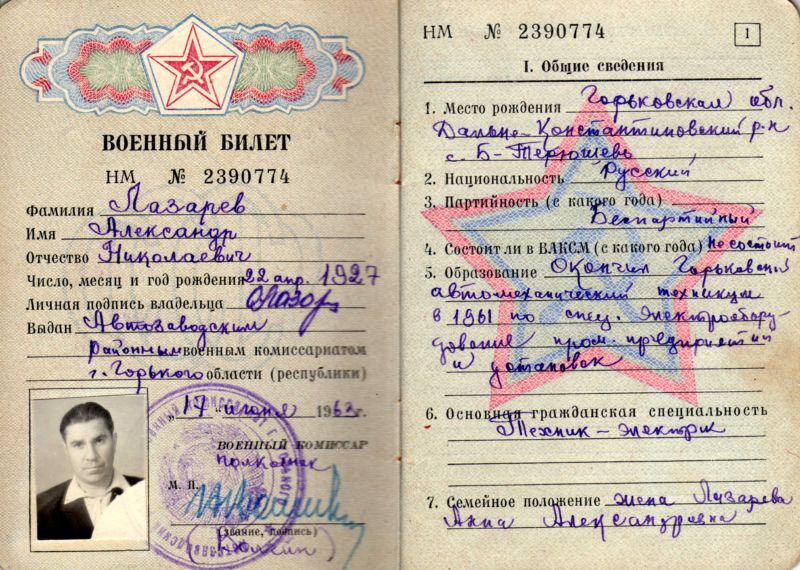 ВОЕННЫЙ БИЛЕТ
НМ № 2390774
Фамилия Лазарев
Имя Александр
Отчество Николаевич
Число, месяц и год рождения 22 апр. 1927
Личная подпись владельца
Выдан Автозаводским
районным военным комиссариатом
г. Горького области (республики)
„17" июня 1963 г.
ВОЕННЫЙ КОМИССАР
полковник
М. П.
(звание, подпись)
НМ № 2390774
1
I. Общие сведения
1. Место рождения Горьковская обл.
Дальне-Константиновский р-н
с. Б-Терюшево
2. Национальность Русский
3. Партийность (с какого года)
Беспартийный
4. Состоит ли в ВЛКСМ (с какого года) Не состоит
5. Образование Окончил Горьковский
автомеханический техникум
в 1961 по спец. Электрообору-
дование пром. предприятий
и установок
6. Основная гражданская специальность
Техник-электрик
7. Семейное положение жена Лазарева
Анна Александровна